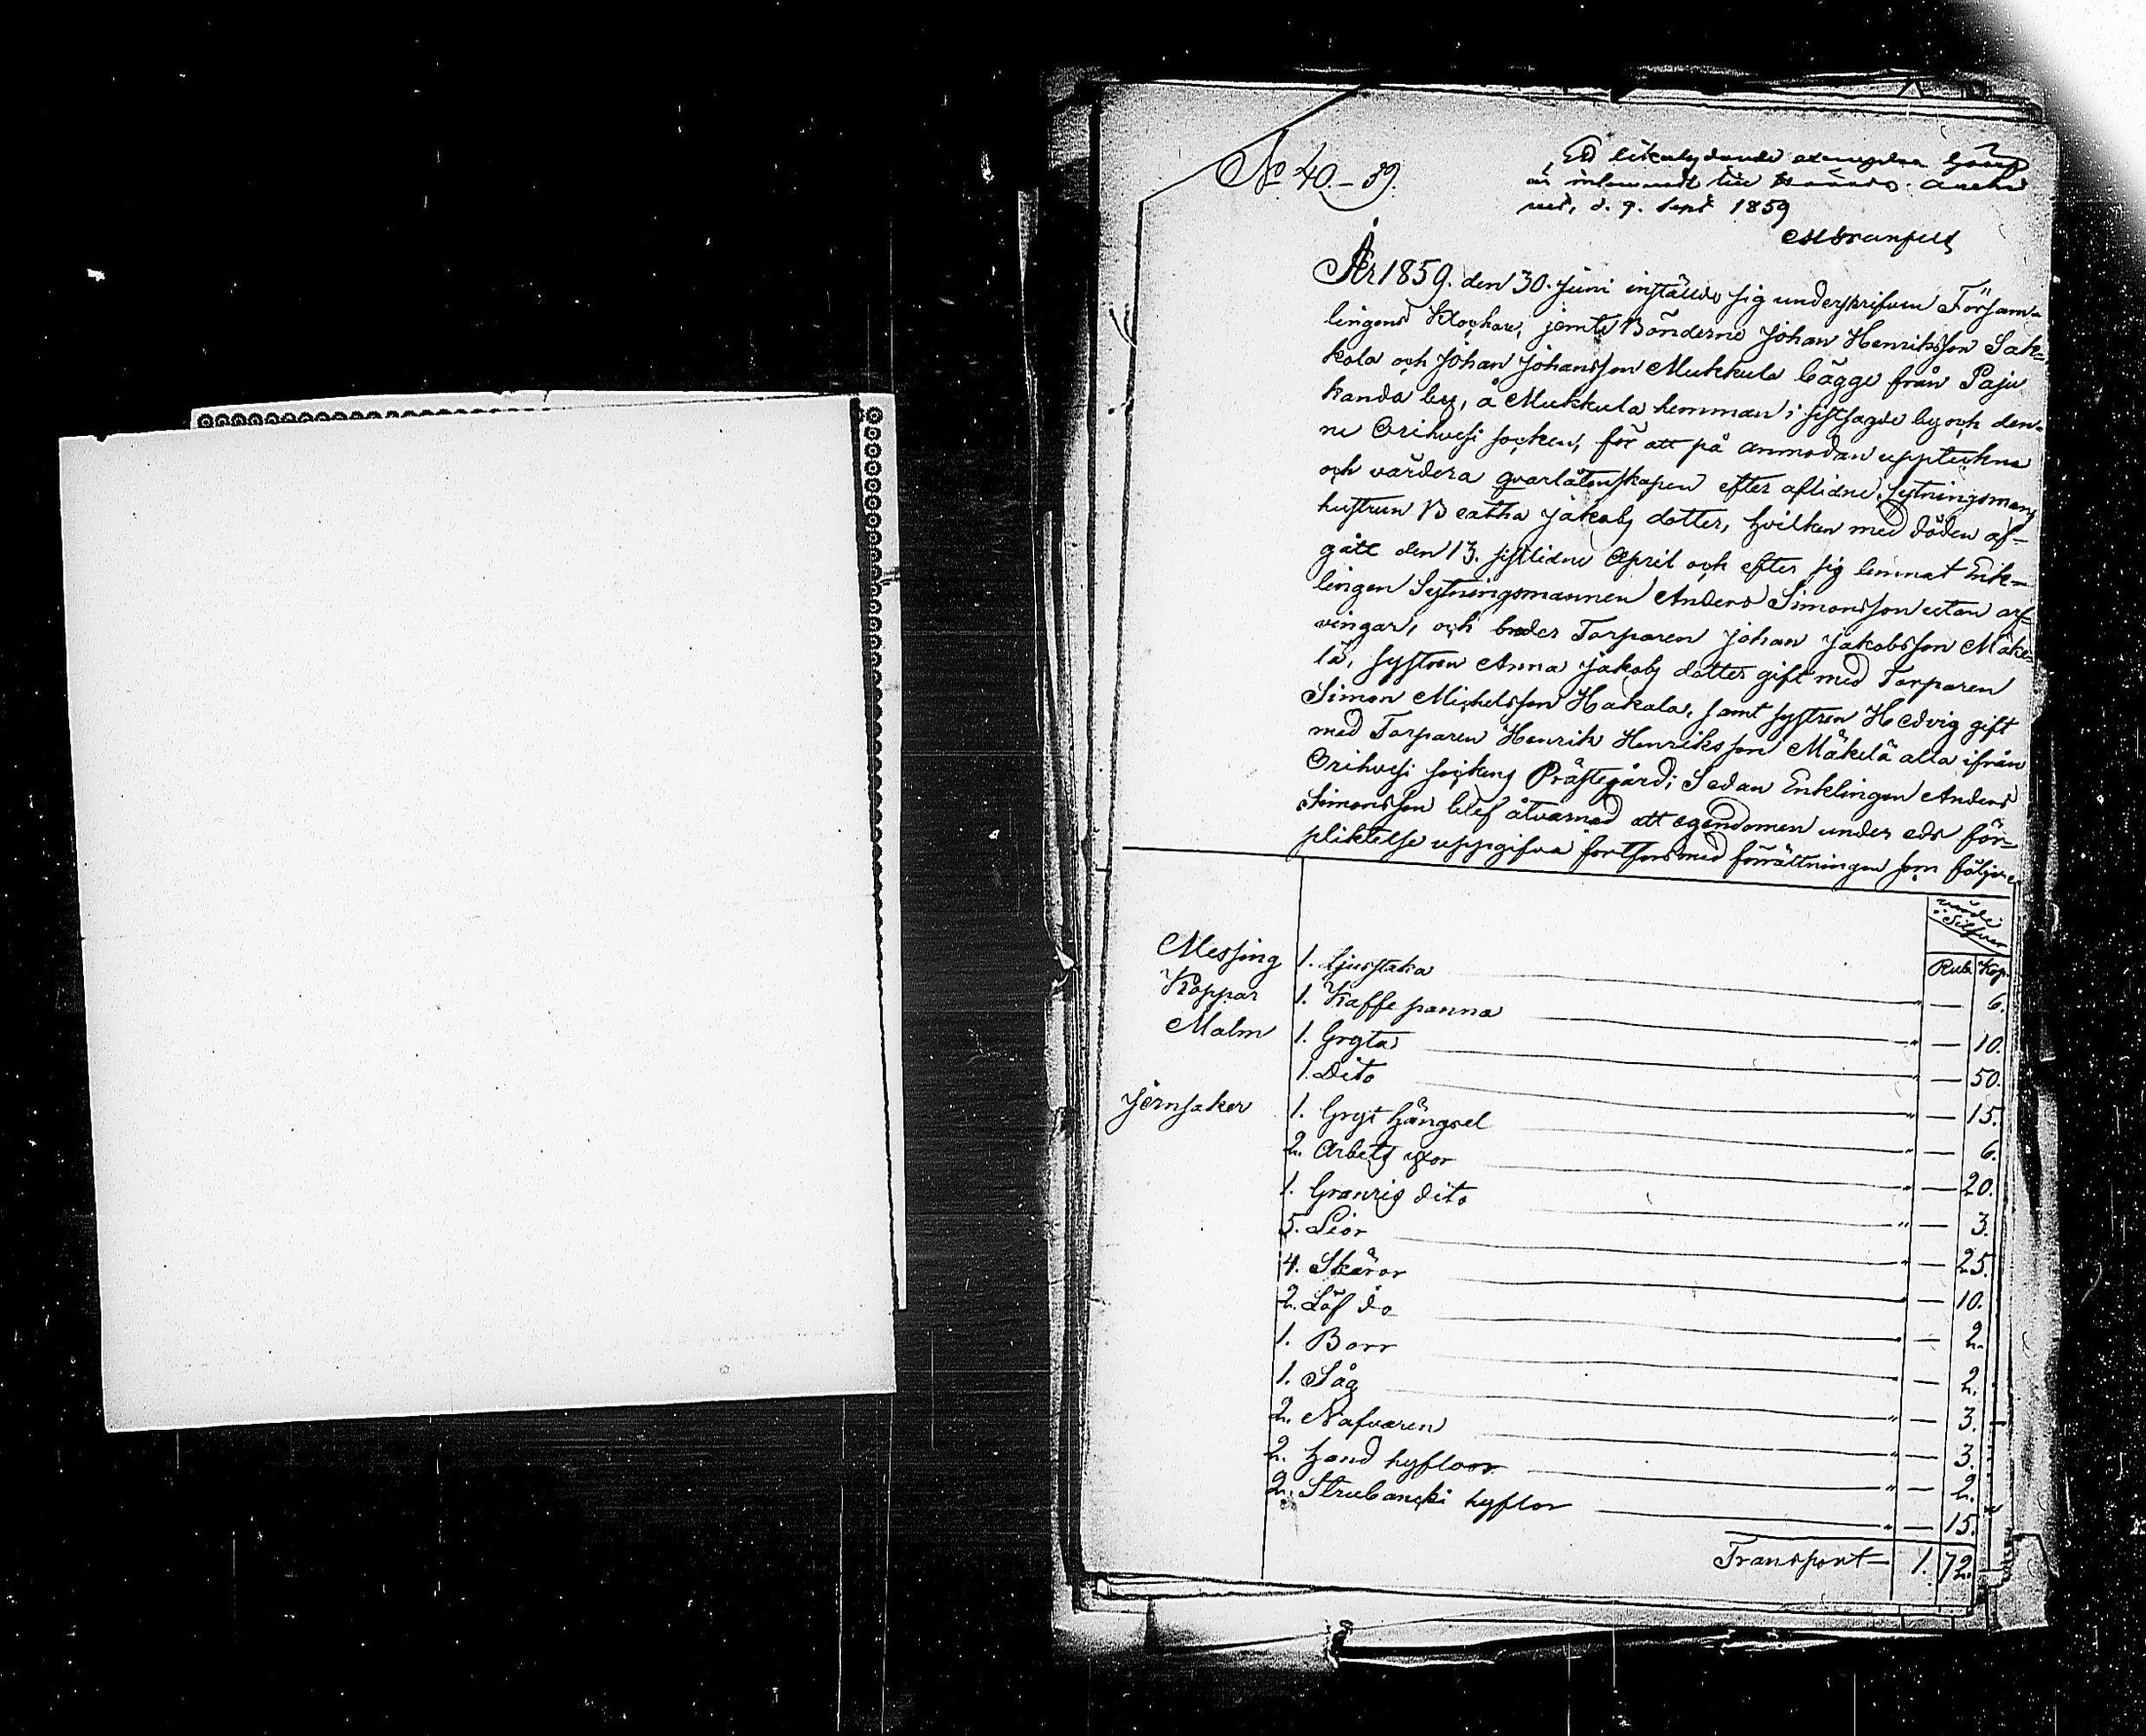 No 40.-39.
Ett likalydande exemplar häraf
är inlemnadt till Härads-
d. 9. Sept 1859
År 1859. den 30. Juni instälde sig underskrifven Försam-
lingens Klockare, jemte Bönderne Johan Henriksson Sak-
kola och Johan Johansson Mukkula bägge från Paju
kanda by, å Mukkula hemman i sistsagde by och den-
ne Orihvesi socken, för att på anmodan uppteckna
och värdera qvarlåtenskapen efter aflidne Sytningsmans
hustrun Beatha Jakobs dotter, hvilken med döden af-
gått den 13. sistlidne April och efter sig lemnat Enk-
lingen Sytningsmannen Anders Simonsson utan arf-
vingar, och broder Torparen Johan Jakobsson Mäke-
lä, systren Anna Jakobs dotter gift med Torparen
Simon Michelsson Hakala, samt systren Hedvig gift
med Torparen Henrik Henriksson Mäkelä alla ifrån
Orihvesi sockens Prästegård; Sedan Enklingen Anders
Simonsson blef åtvarnad att egendomen under eds för-
pliktelse uppgifva fortfors med förrättningen som följer
värde
i Silfver
Rub. Kop.
Messing 1. Ljusstaka " — 6.
Koppar 1. Kaffe panna " — 10.
Malm 1. Gryta " — 50.
1. Dito " — 15.
Jernsaker 1. Gryt hängsel " — 6.
2. Arbets yxor " — 20.
1. Granris dito " — 3.
5. Lior " — 25.
4. Skäror " — 10.
2. Löf do " — 2.
1. Borr " — 2.
1. Såg " — 3.
2. Nafvaren " — 3.
2. Hand hyflar " — 2.
2. Strubancks hyflor " — 15.
Transport — 1. 72.